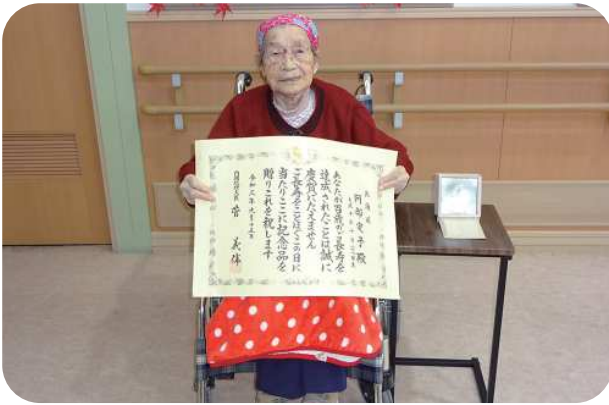 北海道
阿部 定子 殿
あなたが百歳のご長寿を
達成されたことは誠に
慶賀にたえません
ご長寿をことほぐこの日に
当たりここに記念品を
贈りこれを祝します
令和三年九月十五日
内閣総理大臣 菅 義偉